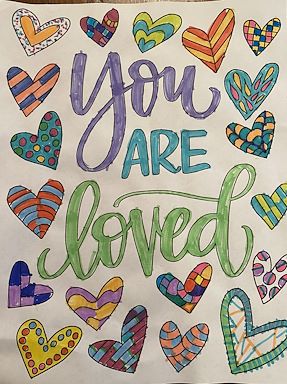 You
ARE
loved